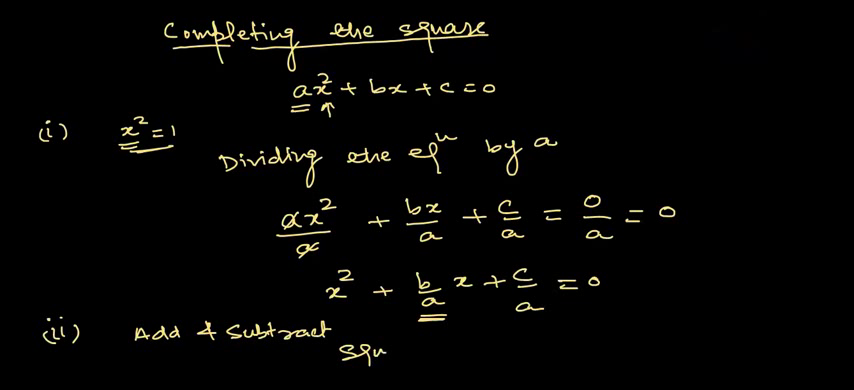 Completing the square
ax² + bx + c = 0
(i) x² = 1
Dividing the eqⁿ by a
ax²/a + bx/a + c/a = 0/a = 0
x² + b/a x + c/a = 0
(ii) Add & Subtract
squ